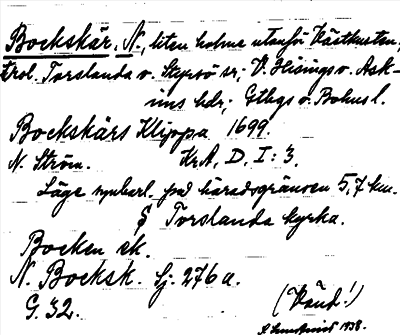 Bockskär, N., liten holme utanför Västkusten,
trol. Torslanda o. Styrsö sr; V. Hisings o. Ask-
ims hdr; Gtbgs o. Bohus l.
Bockskärs Klippa 1699.
N. Ström. KrA, D. I: 3.
Läge uppbarl. på häradsgränsen 5,7 km.
Torslanda kyrka.
Bocken ek.
N. Bocksk. Sj. 276 a.
G. 32. (Vänd!)
1938.